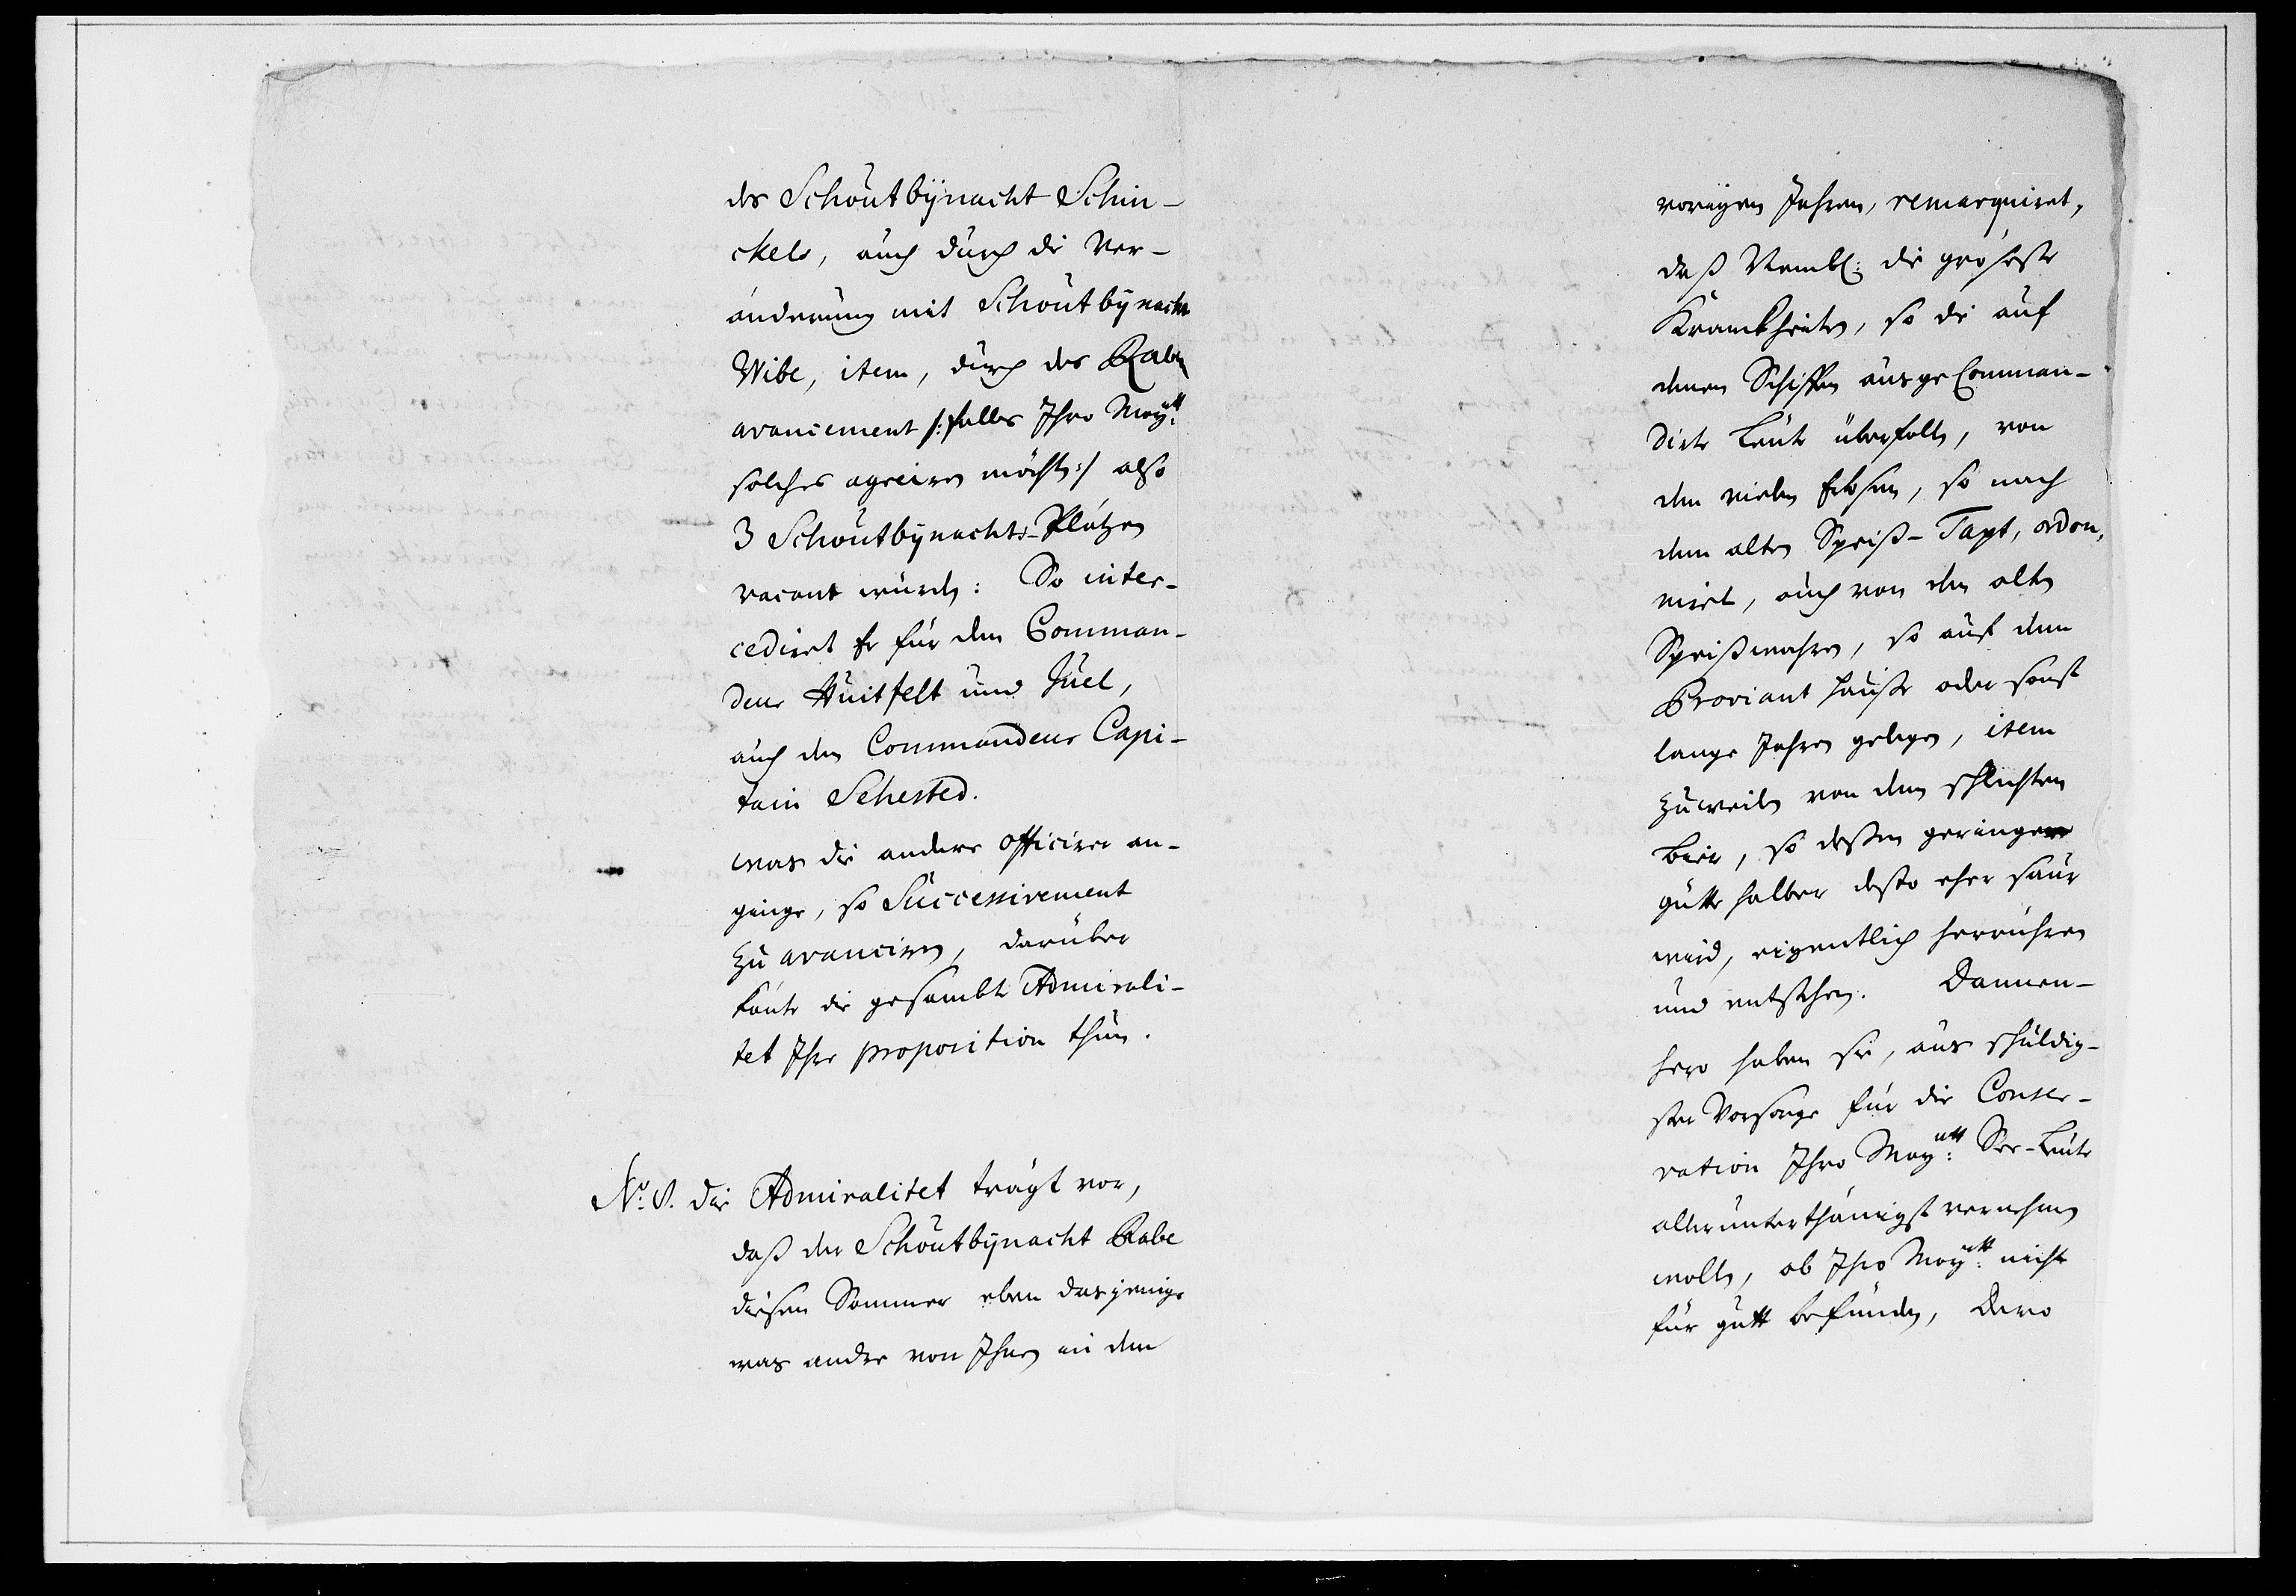 des Schoutbÿnacht Schin-
ckels, auch durch die Ver-
änderung mit Schoutbÿnacht
Wibe, item, durch des Raben
avancement /: falls Ihro Maÿtt:
solches agreiren möchte :/ also
3 Schoutbÿnachts-Plätzen
vacant würden: So inter-
cediret Er für den Comman-
deur Huitfelt und Juel,
auch den Commandeur Capi-
tain Sehested.
was die andere Officirer an-
ginge, so Successivement
zu avanciren, darüber
könte die gesambte Admirali-
tet Ihre proposition thun.
No. 8. Die Admiralitet trägt vor,
daß der Schoutbÿnacht Rabe
diesen Sommer eben dasjenige
was andre von Ihnen in den
vorigen Jahren, remarquiret,
daß Nembl: die gröseste
Kranckheiten, so die auf
denen Schiffen ausge Comman-
dirte Leute überfallen, von
den vielen Erbsen, so nach
dem alten Speiß-Taxt, ordon,
niret, auch von den alten
Speißwahren, so auf dem
Proviant hause oder sonst
lange Jahren gelegen, item
zuweilen von dem schlechten
Bier, so deßen geringen
gütte halber desto eher saur
wird, eigentlich herrühren
und entstehen. Dannen-
hero haben sie, aus schuldig-
ster Vorsorge für die Conser-
vation Ihro Maÿtt: See-Leute
allerunterthänigst vernehmen
wollen, ob Ihro Maÿtt: nicht
für gutt befünden, Dero